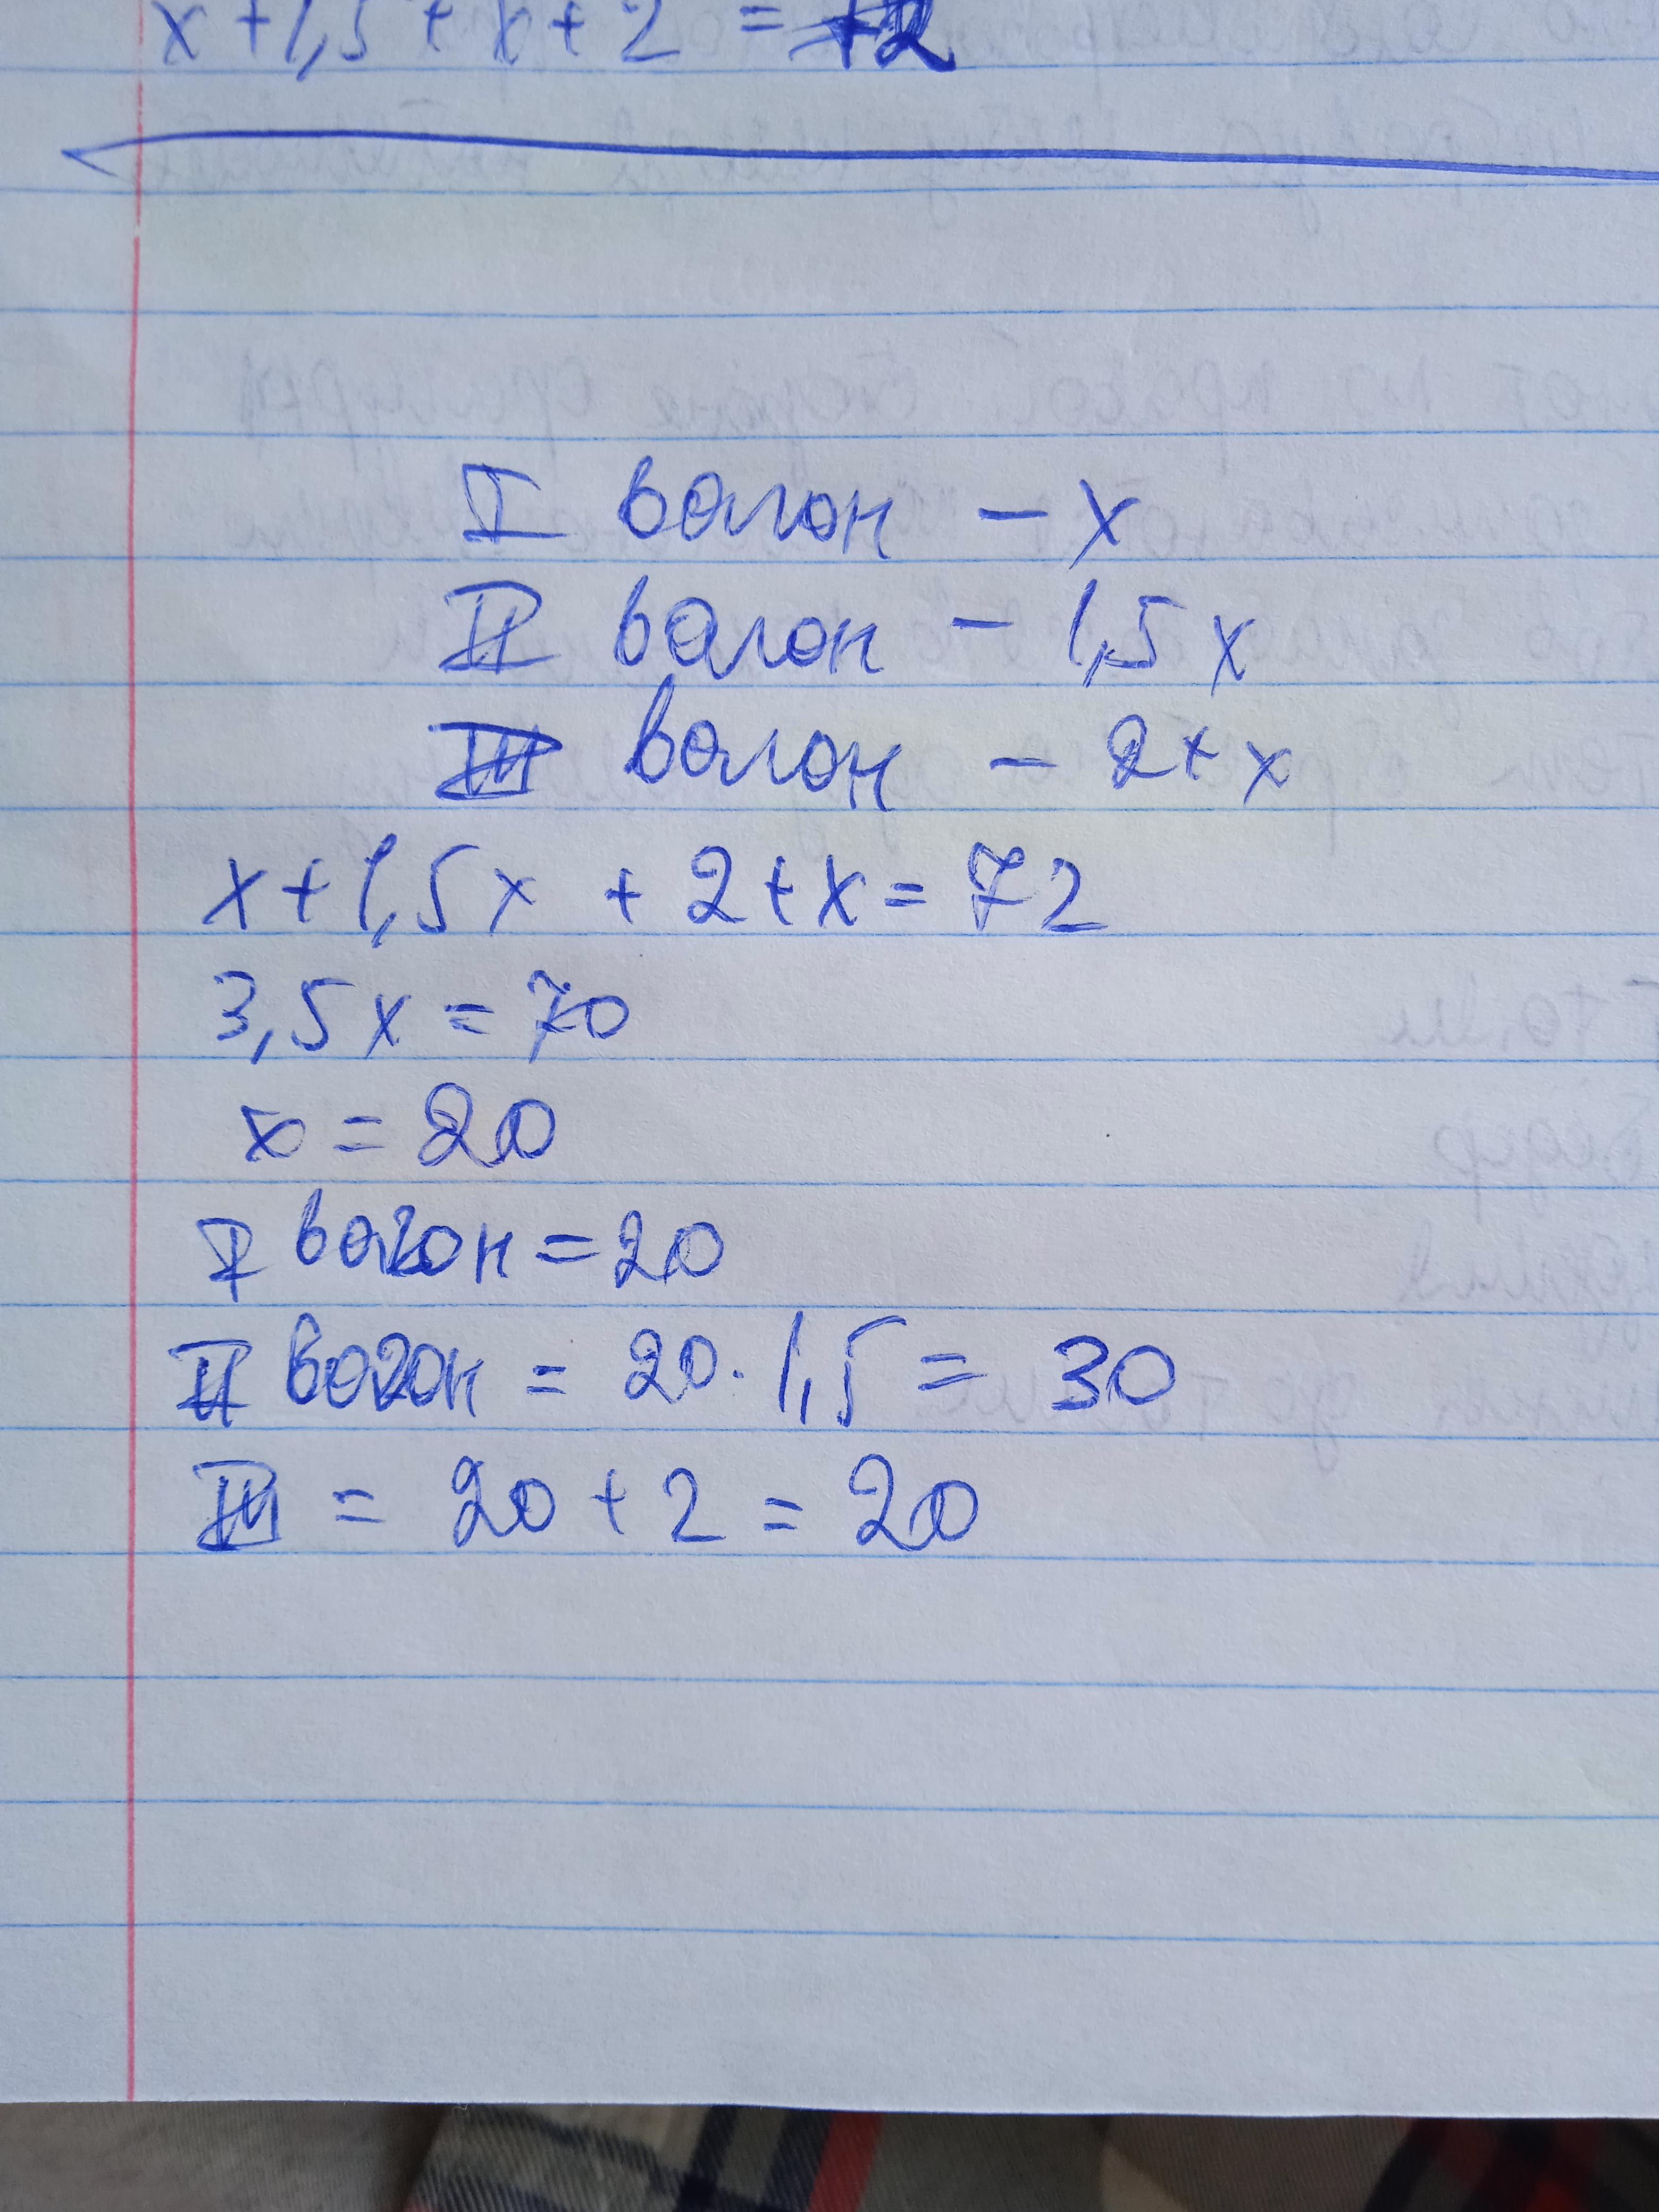 x + 1,5 + x + 2 =
I вагон - x
II вагон - 1,5x
III вагон - 2 + x
x + 1,5x + 2 + x = 72
3,5x = 70
x = 20
I вагон = 20
II вагон = 20 · 1,5 = 30
III = 20 + 2 = 20